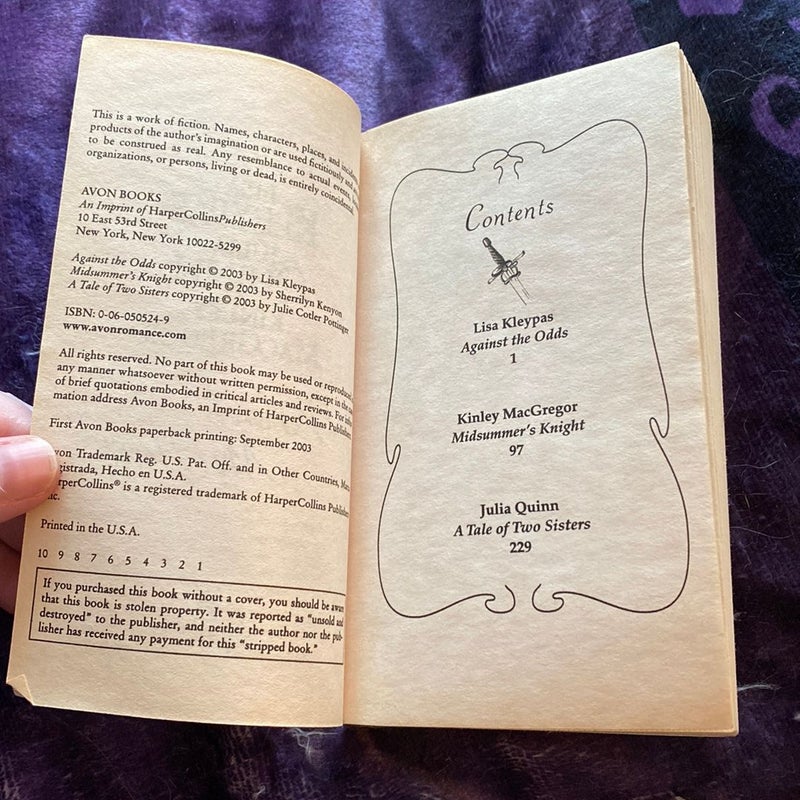 This is a work of fiction. Names, characters, places, and
products of the author's imagination or are used fictitiously and
to be construed as real. Any resemblance to actual events,
organizations, or persons, living or dead, is entirely coincidental.
AVON BOOKS
An Imprint of HarperCollinsPublishers
10 East 53rd Street
New York, New York 10022-5299
Against the Odds copyright © 2003 by Lisa Kleypas
Midsummer's Knight copyright © 2003 by Sherrilyn Kenyon
A Tale of Two Sisters copyright © 2003 by Julie Cotler Pottinger
ISBN: 0-06-050524-9
www.avonromance.com
All rights reserved. No part of this book may be used or reproduced
any manner whatsoever without written permission, except in the
of brief quotations embodied in critical articles and reviews. For
mation address Avon Books, an Imprint of HarperCollins Publishers
First Avon Books paperback printing: September 2003
Trademark Reg. U.S. Pat. Off. and in Other Countries,
Hecho en U.S.A.
HarperCollins® is a registered trademark of HarperCollins Publishers
Printed in the U.S.A.
10 9 8 7 6 5 4 3 2 1
If you purchased this book without a cover, you should be aware
that this book is stolen property. It was reported as "unsold and
destroyed" to the publisher, and neither the author nor the pub-
lisher has received any payment for this "stripped book."
Contents
Lisa Kleypas
Against the Odds
1
Kinley MacGregor
Midsummer's Knight
97
Julia Quinn
A Tale of Two Sisters
229